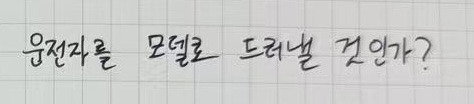 운전자를 모델로 드러낼 것인가?